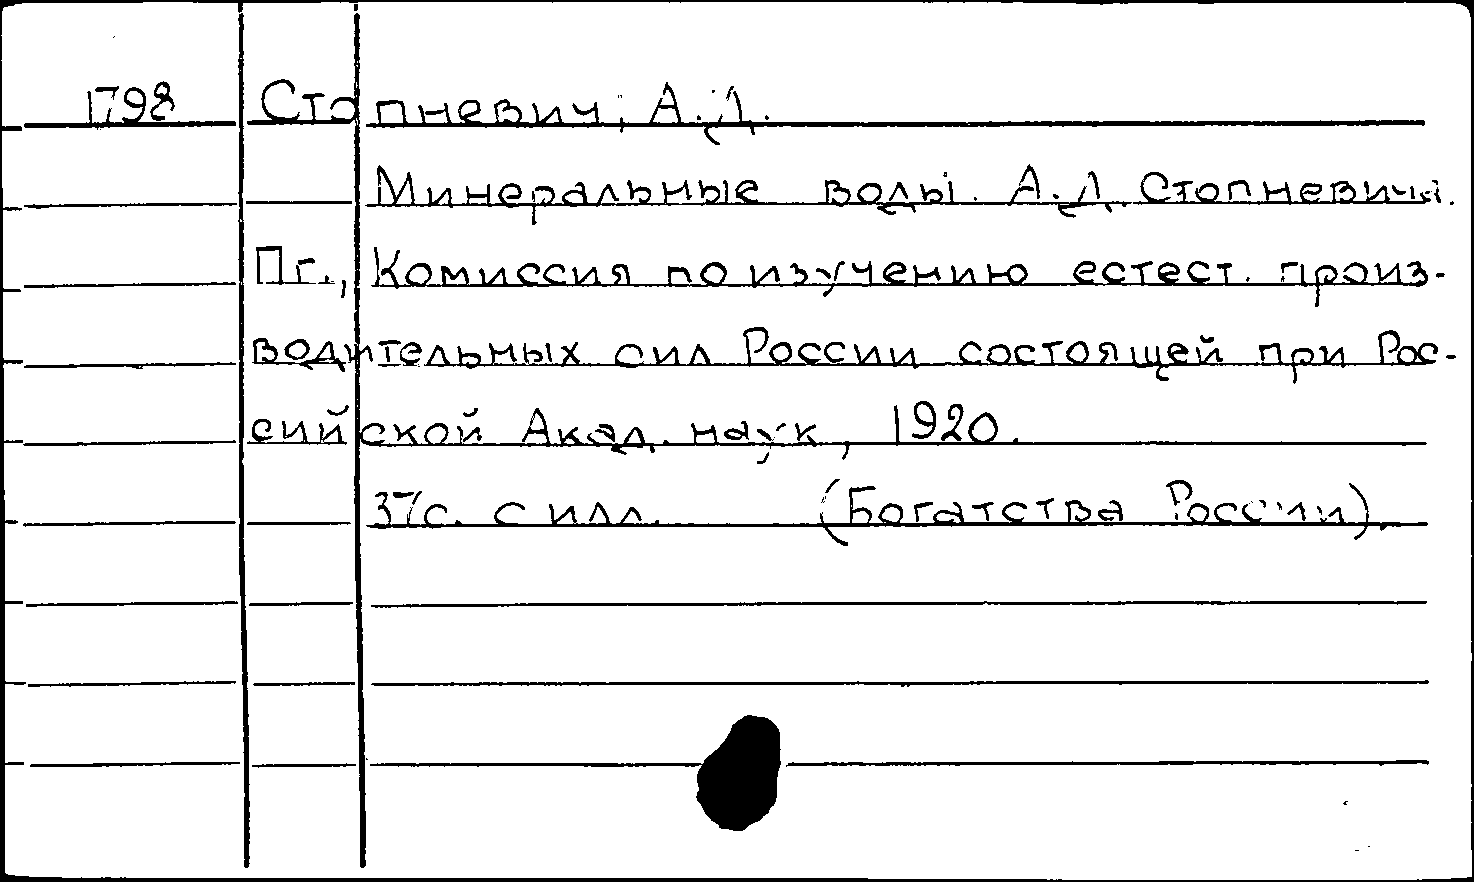 1798 Стопневич, А.Д.
Минеральные воды. А.Д. Стопневича.
Пг., Комиссия по изучению естест. произ-
водительных сил России состоящей при Рос-
сийской Акад. наук, 1920.
37с. с илл. (Богатства России).